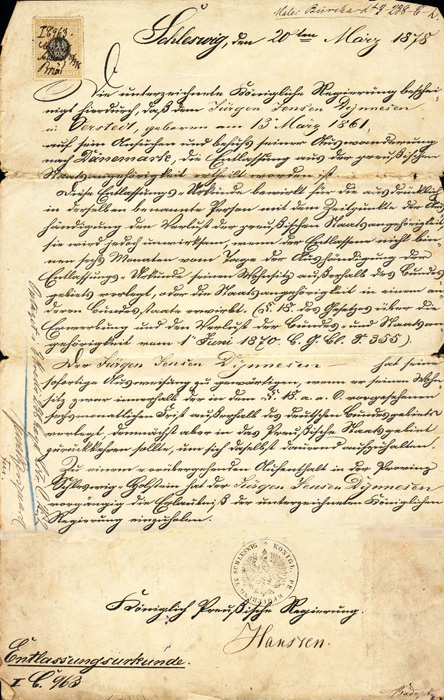 Schleswig, den 20ten März 1878
I E 963
Die unterzeichnete Königliche Regierung beschei-
nigt hierdurch, daß dem Jürgen Jensen Dynnesen
in Oerstedt, geboren am 13 März 1861,
auf sein Ansuchen und behufs seiner Auswanderung
nach Dänemark, die Entlassung aus der preußischen
Staatsangehörigkeit ertheilt worden ist.
Diese Entlassungs-Urkunde bewirkt für die ausdrücklich
in derselben benannte Person mit dem Zeitpunkte der Aus-
händigung den Verlust der preußischen Staatsangehörigkeit;
sie wird jedoch unwirksam, wenn der Entlassene nicht bin-
nen sechs Monaten vom Tage der Aushändigung der
Entlassungs-Urkunde seinen Wohnsitz außerhalb des Bundes-
gebiets verlegt, oder die Staatsangehörigkeit in einem an-
deren Bundesstaate erwirbt. (§. 18. des Gesetzes über die
Erwerbung und den Verlust der Bundes- und Staatsan-
gehörigkeit vom 1 Juni 1870. B. G. Bl. S. 355).
Der Jürgen Jensen Dynnesen hat seine
sofortige Ausweisung zu gewärtigen, wenn er seinen Wohn-
sitz zwar innerhalb der in dem §. 18. a. a. O. vorgesehenen
sechsmonatlichen Frist außerhalb des deutschen Bundesgebiets
verlegt, demnächst aber in das Preußische Staatsgebiet
zurückkehren sollte, um sich daselbst dauernd aufzuhalten.
Zu einem vorübergehenden Aufenthalt in der Provinz
Schleswig-Holstein hat der Jürgen Jensen Dynnesen
vorgängig die Erlaubniß der unterzeichneten Königlichen
Regierung einzuholen.
Königlich Preußische Regierung.
Hanssen.
Entlassungsurkunde.
I C 963